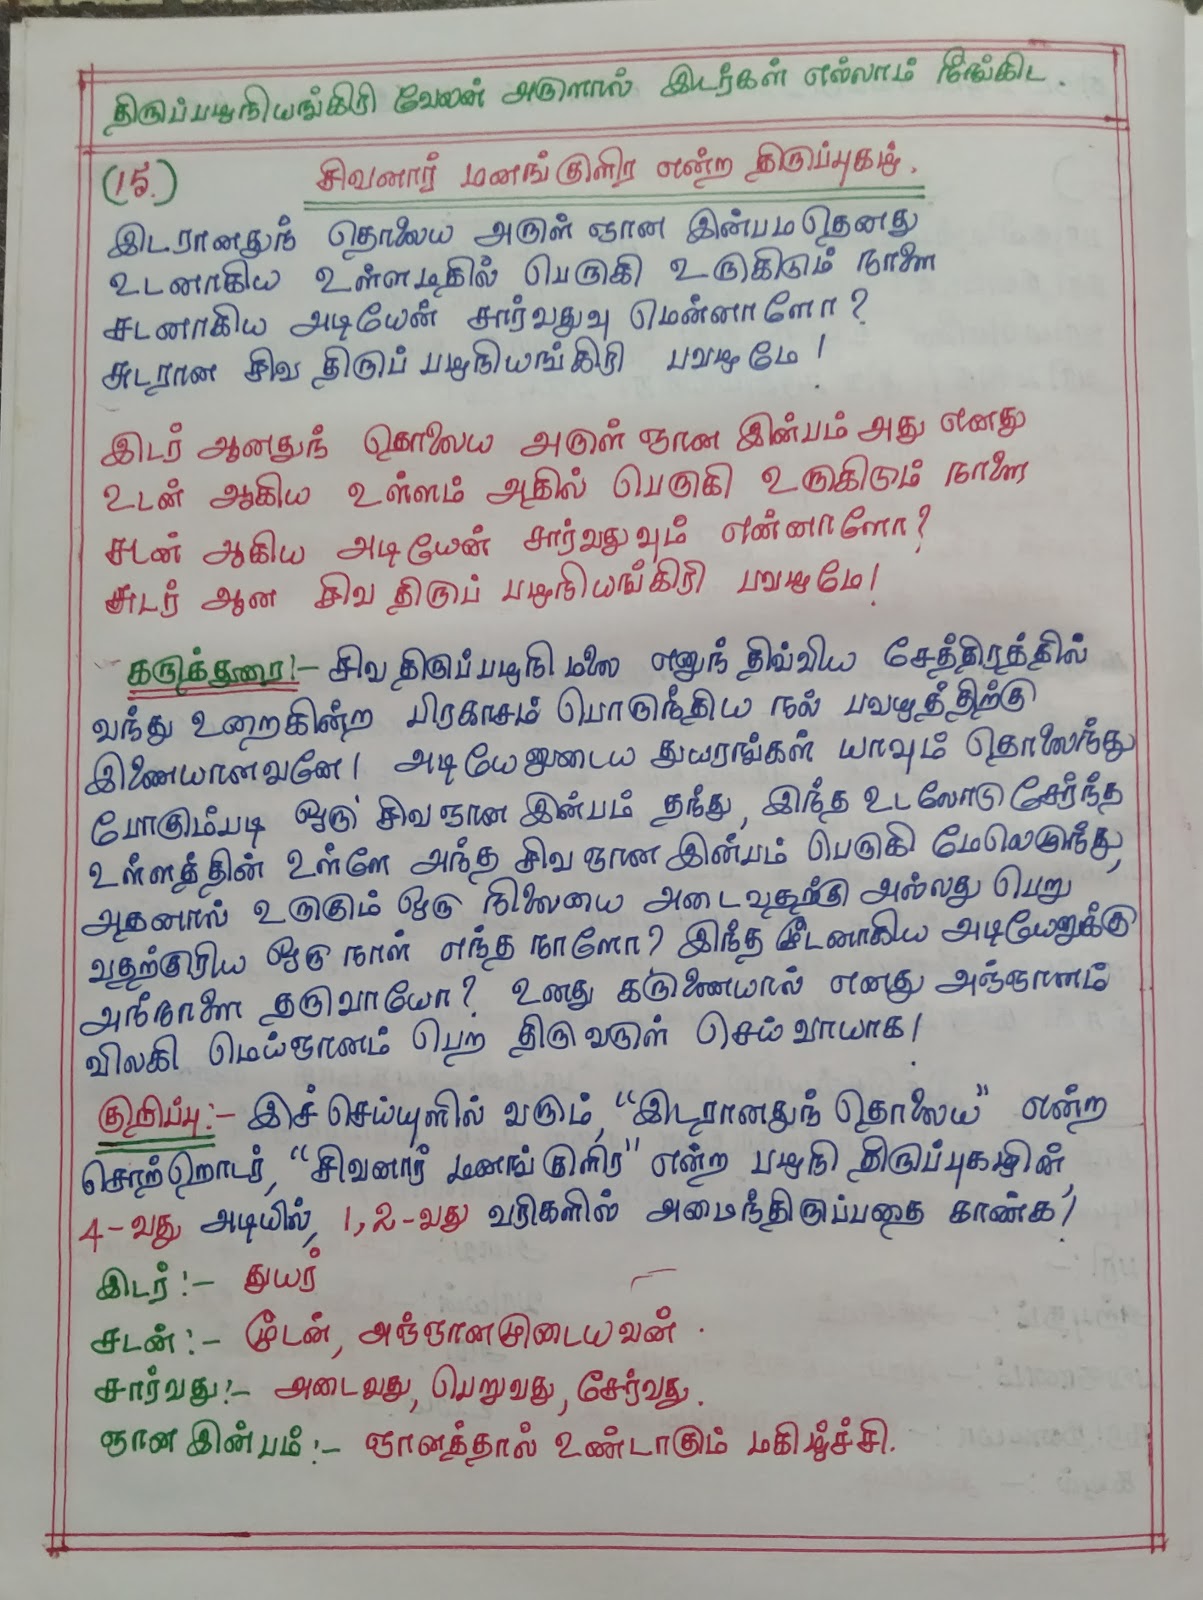 திருப்பழநியங்கிரி வேலன் அருளால் இடர்கள் எல்லாம் நீங்கிட.
(15.) சிவனார் மனங்குளிர என்ற திருப்புகழ்.
இடரானதுந் தொலைய அருள் ஞான இன்பமதெனது
உடனாகிய உள்ளமதில் பெருகி உருகிடும் நாளை
சடனாகிய அடியேன் சார்வதுவு மென்னாளோ?
சுடரான சிவ திருப் பழநியங்கிரி பவழமே!
இடர் ஆனதுந் தொலைய அருள் ஞான இன்பம் அது எனது
உடன் ஆகிய உள்ளம் அதில் பெருகி உருகிடும் நாளை
சடன் ஆகிய அடியேன் சார்வதுவும் என்னாளோ?
சுடர் ஆன சிவ திருப் பழநியங்கிரி பவழமே!
கருத்துரை:- சிவ திருப்பழநி மலை எனுந் திவ்விய சேத்திரத்தில்
வந்து உறைகின்ற பிரகாசம் பொருந்திய நல் பவழத்திற்கு
இணையானவனே! அடியேனுடைய துயரங்கள் யாவும் தொலைந்து
போகும்படி ஒரு சிவ ஞான இன்பம் தந்து, இந்த உடலோடு சேர்ந்த
உள்ளத்தின் உள்ளே அந்த சிவ ஞான இன்பம் பெருகி மேலெழுந்து,
அதனால் உருகும் ஒரு நிலையை அடைவதற்கு அல்லது பெறு
வதற்குரிய ஒரு நாள் எந்த நாளோ? இந்த மூடனாகிய அடியேனுக்கு
அந்நாளை தருவாயோ? உனது கருணையால் எனது அஞ்ஞானம்
விலகி மெய்ஞானம் பெற திருவருள் செய்வாயாக!
குறிப்பு:- இச் செய்யுளில் வரும், "இடரானதுந் தொலைய" என்ற
சொற்றொடர், "சிவனார் மனங் குளிர" என்ற பழநி திருப்புகழின்,
4-வது அடியில், 1,2-வது வரிகளில் அமைந்திருப்பதை காண்க!
இடர்:- துயர்
சடன்:- மூடன், அஞ்ஞானமுடையவன்.
சார்வது:- அடைவது, பெறுவது, சேர்வது.
ஞான இன்பம்:- ஞானத்தால் உண்டாகும் மகிழ்ச்சி.